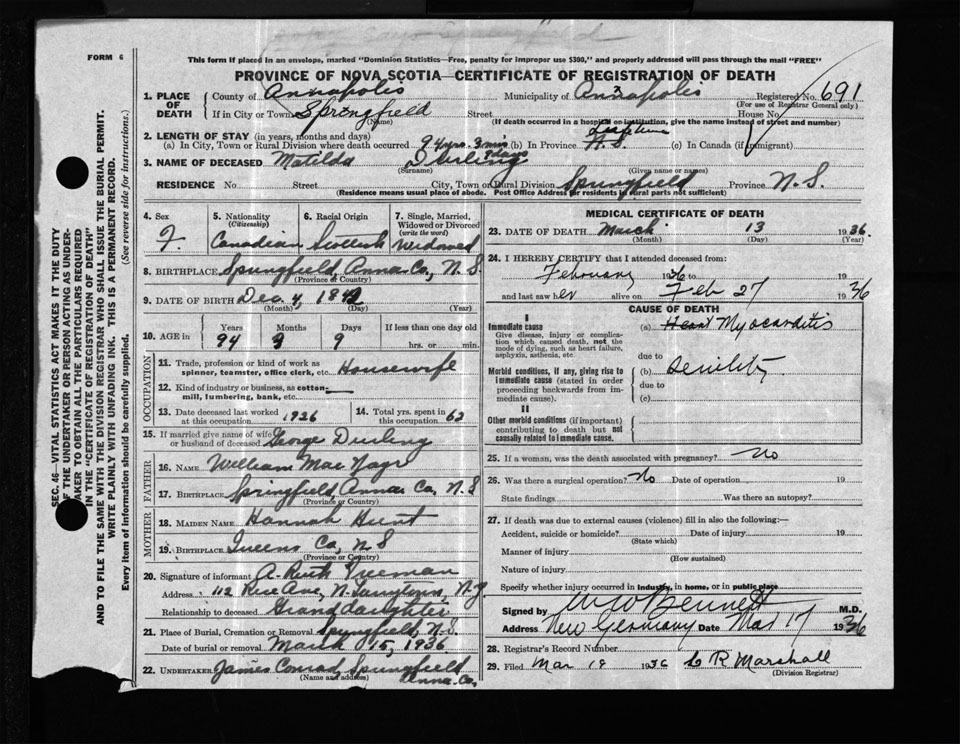 FORM 6
This form if placed in an envelope, marked "Dominion Statistics—Free, penalty for improper use $300," and properly addressed will pass through the mail "FREE"
PROVINCE OF NOVA SCOTIA—CERTIFICATE OF REGISTRATION OF DEATH
SEC. 46—VITAL STATISTICS ACT MAKES IT THE DUTY
OF THE UNDERTAKER OR PERSON ACTING AS UNDER-
TAKER TO OBTAIN ALL THE PARTICULARS REQUIRED
IN THE "CERTIFICATE OF REGISTRATION OF DEATH"
AND TO FILE THE SAME WITH THE DIVISION REGISTRAR WHO SHALL ISSUE THE BURIAL PERMIT.
WRITE PLAINLY WITH UNFADING INK. THIS IS A PERMANENT RECORD.
Every item of information should be carefully supplied. (See reverse side for instructions.)
1. PLACE OF DEATH County of Annapolis Municipality of Annapolis Registered No. 691
(For use of Registrar General only)
If in City or Town Springfield Street House No
(Name) (If death occurred in a hospital or institution, give the name instead of street and number)
2. LENGTH OF STAY (in years, months and days)
(a) In City, Town or Rural Division where death occurred 94 yrs. 3 mos 9 days (b) In Province Lifetime N.S. (c) In Canada (if immigrant)
3. NAME OF DECEASED Matilda Durling
(Surname) (Given name or names)
RESIDENCE No Street City, Town or Rural Division Springfield Province N.S.
(Residence means usual place of abode. Post Office Address for residents in rural parts not sufficient)
4. Sex F.
5. Nationality (Citizenship) Canadian
6. Racial Origin Scottish
7. Single, Married, Widowed or Divorced (write the word) Widowed
8. BIRTHPLACE Springfield, Anna. Co., N.S.
(Province or Country)
9. DATE OF BIRTH Dec. 4, 1842
(Month) (Day) (Year)
10. AGE in Years 94 Months 3 Days 9 If less than one day old hrs. or min.
OCCUPATION
11. Trade, profession or kind of work as spinner, teamster, office clerk, etc. Housewife
12. Kind of industry or business, as cotton-mill, lumbering, bank, etc. —
13. Date deceased last worked at this occupation 1926
14. Total yrs. spent in this occupation 62
15. If married give name of wife or husband of deceased George Durling
FATHER
16. NAME William Mac Nayr
17. BIRTHPLACE Springfield, Anna. Co., N.S
(Province or Country)
MOTHER
18. MAIDEN NAME Hannah Hunt
19. BIRTHPLACE Queens Co, N.S
(Province or Country)
20. Signature of informant A. Ruth Freeman
Address 112 Rice Ave, N.J.
Relationship to deceased Granddaughter
21. Place of Burial, Cremation or Removal Springfield, N.S.
Date of burial or removal March 15, 1936
22. UNDERTAKER James Conrad, Springfield
(Name and address) Anna. Co.
MEDICAL CERTIFICATE OF DEATH
23. DATE OF DEATH March 13 1936.
(Month) (Day) (Year)
24. I HEREBY CERTIFY that I attended deceased from:
February 1936 to 19
and last saw her alive on Feb 27 1936
CAUSE OF DEATH
I
Immediate cause
Give disease, injury or complication which caused death, not the mode of dying, such as heart failure, asphyxia, asthenia, etc.
(a) Heart Myocarditis
due to
Morbid conditions, if any, giving rise to immediate cause (stated in order proceeding backwards from immediate cause).
(b) Senility
due to
(c)
II
Other morbid conditions (if important) contributing to death but not causally related to immediate cause.
25. If a woman, was the death associated with pregnancy? no
26. Was there a surgical operation? No Date of operation 19
State findings Was there an autopsy?
27. If death was due to external causes (violence) fill in also the following:—
Accident, suicide or homicide? Date of injury 19
(State which)
Manner of injury
(How sustained)
Nature of injury
Specify whether injury occurred in industry, in home, or in public place
Signed by W Bennett M.D.
Address New Germany Date Mar 17 1936
28. Registrar's Record Number
29. Filed Mar 18 1936 L R Marshall
(Division Registrar)